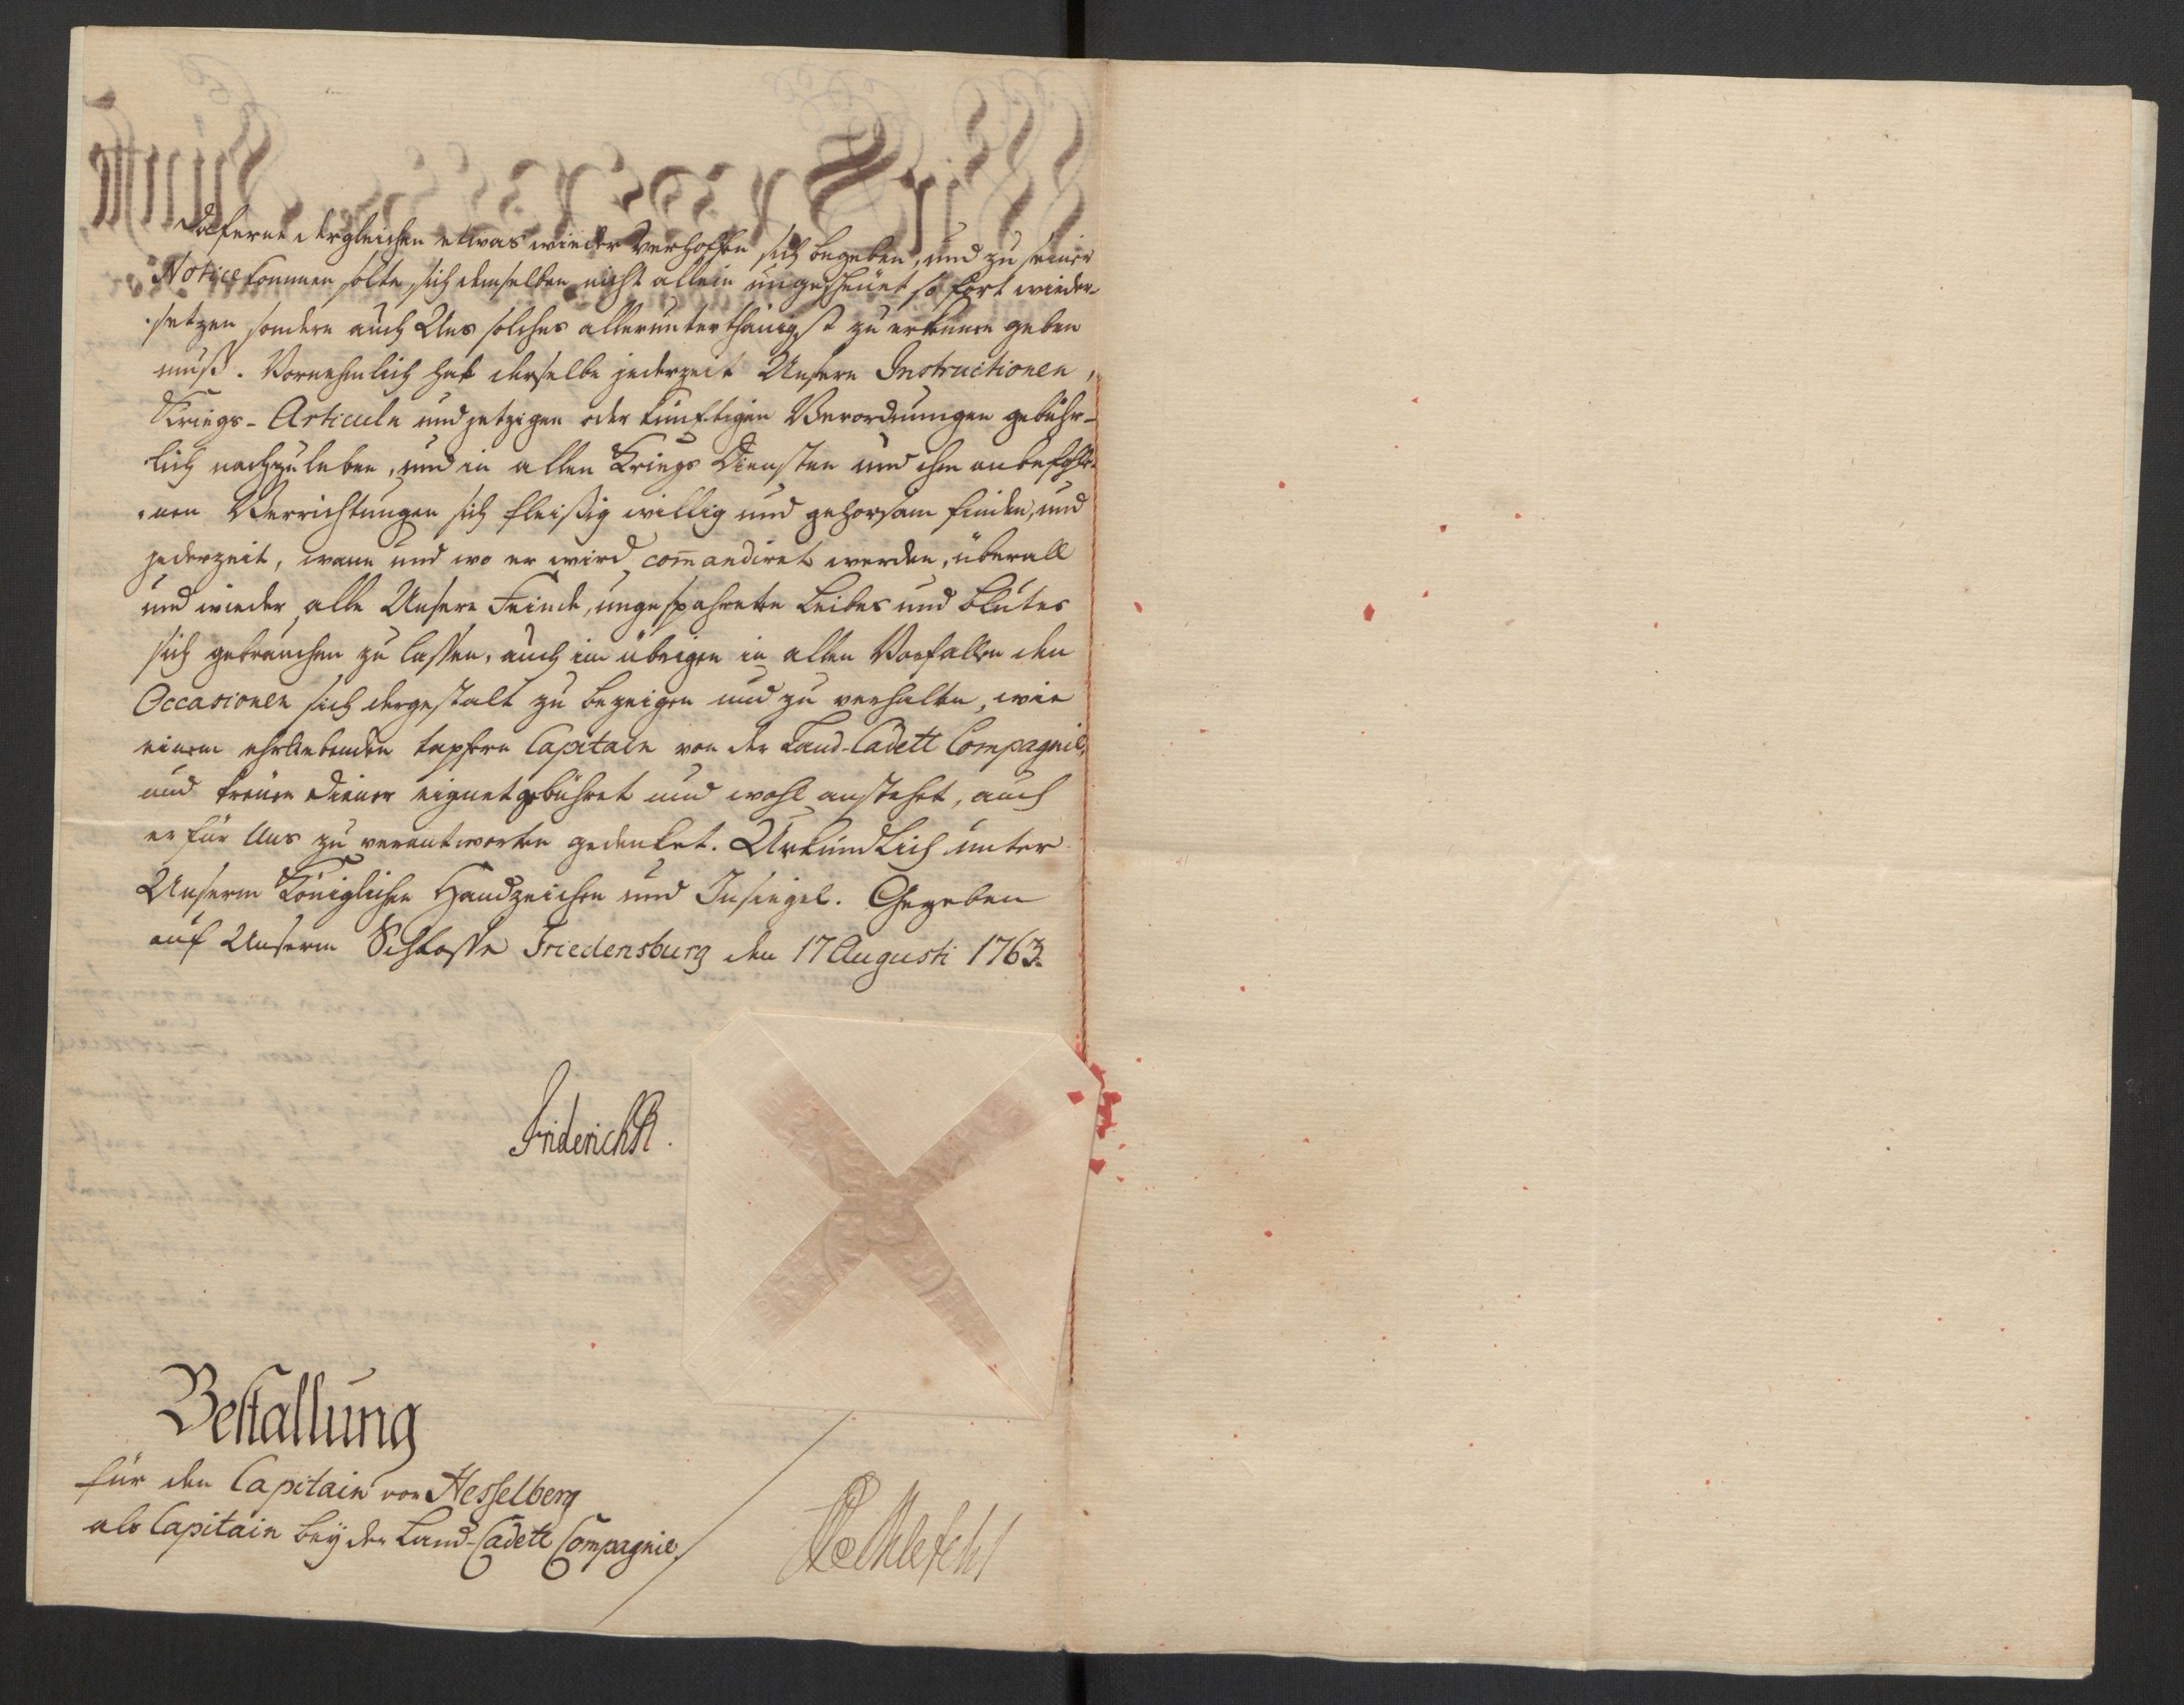 daferne dergleichen etwas wieder verhoffen sich begeben, und zu seiner
Notice kommen solte, sich demselben nicht allein ungescheuet so fort wieder-
setzen sondern auch Uns solches allerunterthänigst zu erkennen geben
muß. Vornehmlich hat derselbe jederzeit Unsern Instructionen,
Kriegs-Articuln und jetzigen oder künftigen Verordnungen gebühr-
lich nachzuleben, und in allen Kriegs Diensten und ihm anbefohle-
nen Verrichtungen sich fleißig willig und gehorsam finden, und
jederzeit, wann und wo er wird com̅andiret werden, überall
und wieder alle Unsere Feinde, ungespahrete Leibes und Blutes
sich gebrauchen zu lassen, auch im übrigen in allen Vorfallen den
Occasionen sich dergestalt zu bezeigen und zu verhalten, wie
einem ehrliebenden tapfern Capitain von der Land-Cadett Compagnie,
und treuen Diener eignet gebühret und wohl anstehet, auch
er für Uns zu verantworten gedenket. Urkundlich unter
Unserm Königlichen Handzeichen und Insiegel. Gegeben
auf Unserm Schlosse Friedensburg den 17 Augusti 1763.
Friderich R.
Bestallung
für den Capitain von Hesselberg
als Capitain bey der Land-Cadett Compagnie.